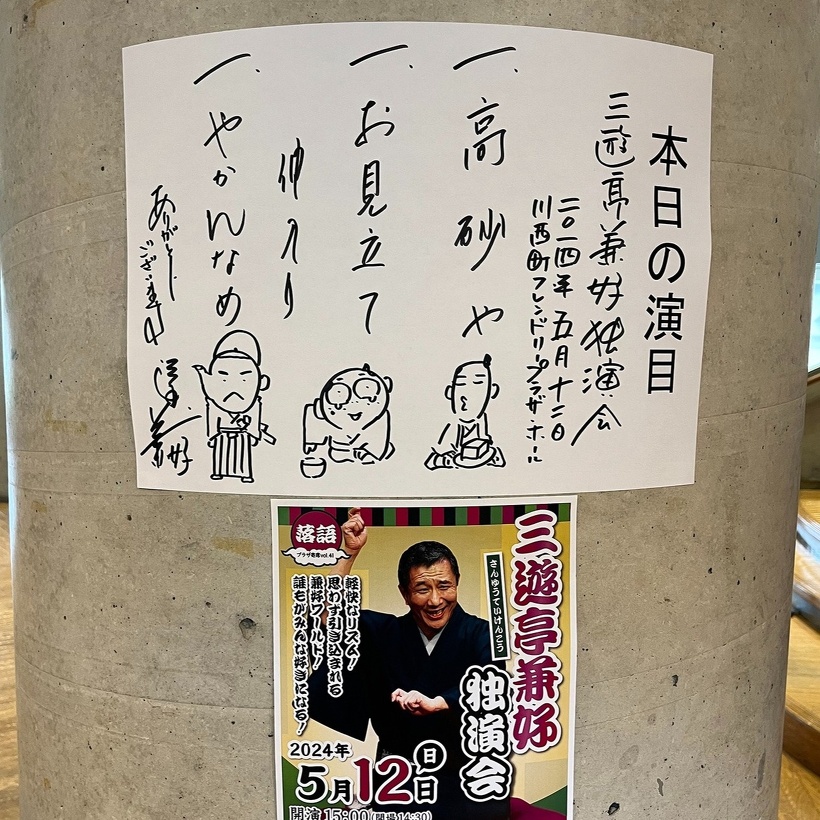 本日の演目
三遊亭兼好独演会
二〇一四年 五月十二日
川西町フレンドリープラザ・ホール
一、高砂や
一、お見立て
仲入り
一、やかんなめ
ありがとう
ございます
兼好
落語
プラザ寄席vol.41
三遊亭兼好
さんゆうていけんこう
独演会
軽快なリズム!
思わず引き込まれる
兼好ワールド!
誰もがみんな好きになる!
2024年
5月12日 日
開演15:00(開場14:30)